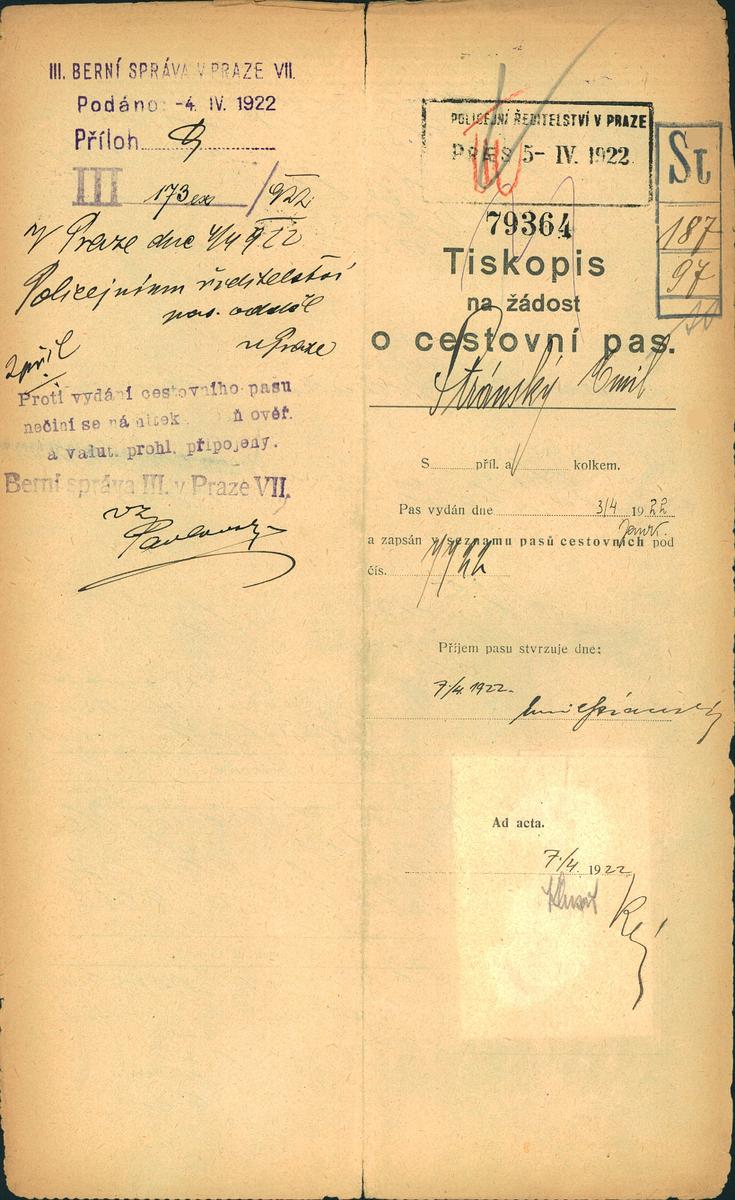 III. BERNÍ SPRÁVA V PRAZE VII.
Podáno: -4. IV. 1922
Příloh
III 173 ex / 922
V Praze dne 4/4 922
Policejnímu ředitelství
pas. odděl
v Praze
2 příl
Proti vydání cestovního pasu
nečiní se námitek ověř.
a valut. prohl. připojeny.
Berní správa III. v Praze VII.
POLICEJNÍ ŘEDITELSTVÍ V PRAZE
PRAES 5- IV. 1922
St
187
97
79364
Tiskopis
na žádost
o cestovní pas.
Stránský Emil
S příl. a kolkem.
Pas vydán dne 3/4 1922
a zapsán v seznamu pasů cestovních pod
čís.
Příjem pasu stvrzuje dne:
7/4 1922.
Emil Stránský
Ad acta.
7/4. 1922